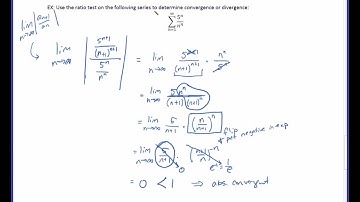 EX: Use the ratio test on the following series to determine convergence or divergence:
∞ Σ n=1 5ⁿ/nⁿ
lim n→∞ |aₙ₊₁/aₙ|
lim n→∞ |(5ⁿ⁺¹/(n+1)ⁿ⁺¹)/(5ⁿ/nⁿ)| = lim n→∞ 5ⁿ⁺¹/(n+1)ⁿ⁺¹ · nⁿ/5ⁿ
= lim n→∞ 5 nⁿ/((n+1)(n+1)ⁿ)
= lim n→∞ 5/(n+1) · (n/(n+1))ⁿ flip + put negative in exp
= lim n→∞ 5/(n+1) ((n+1)/n)⁻ⁿ
0 e⁻¹ = 1/e
= 0 < 1 ⇒ abs convergent